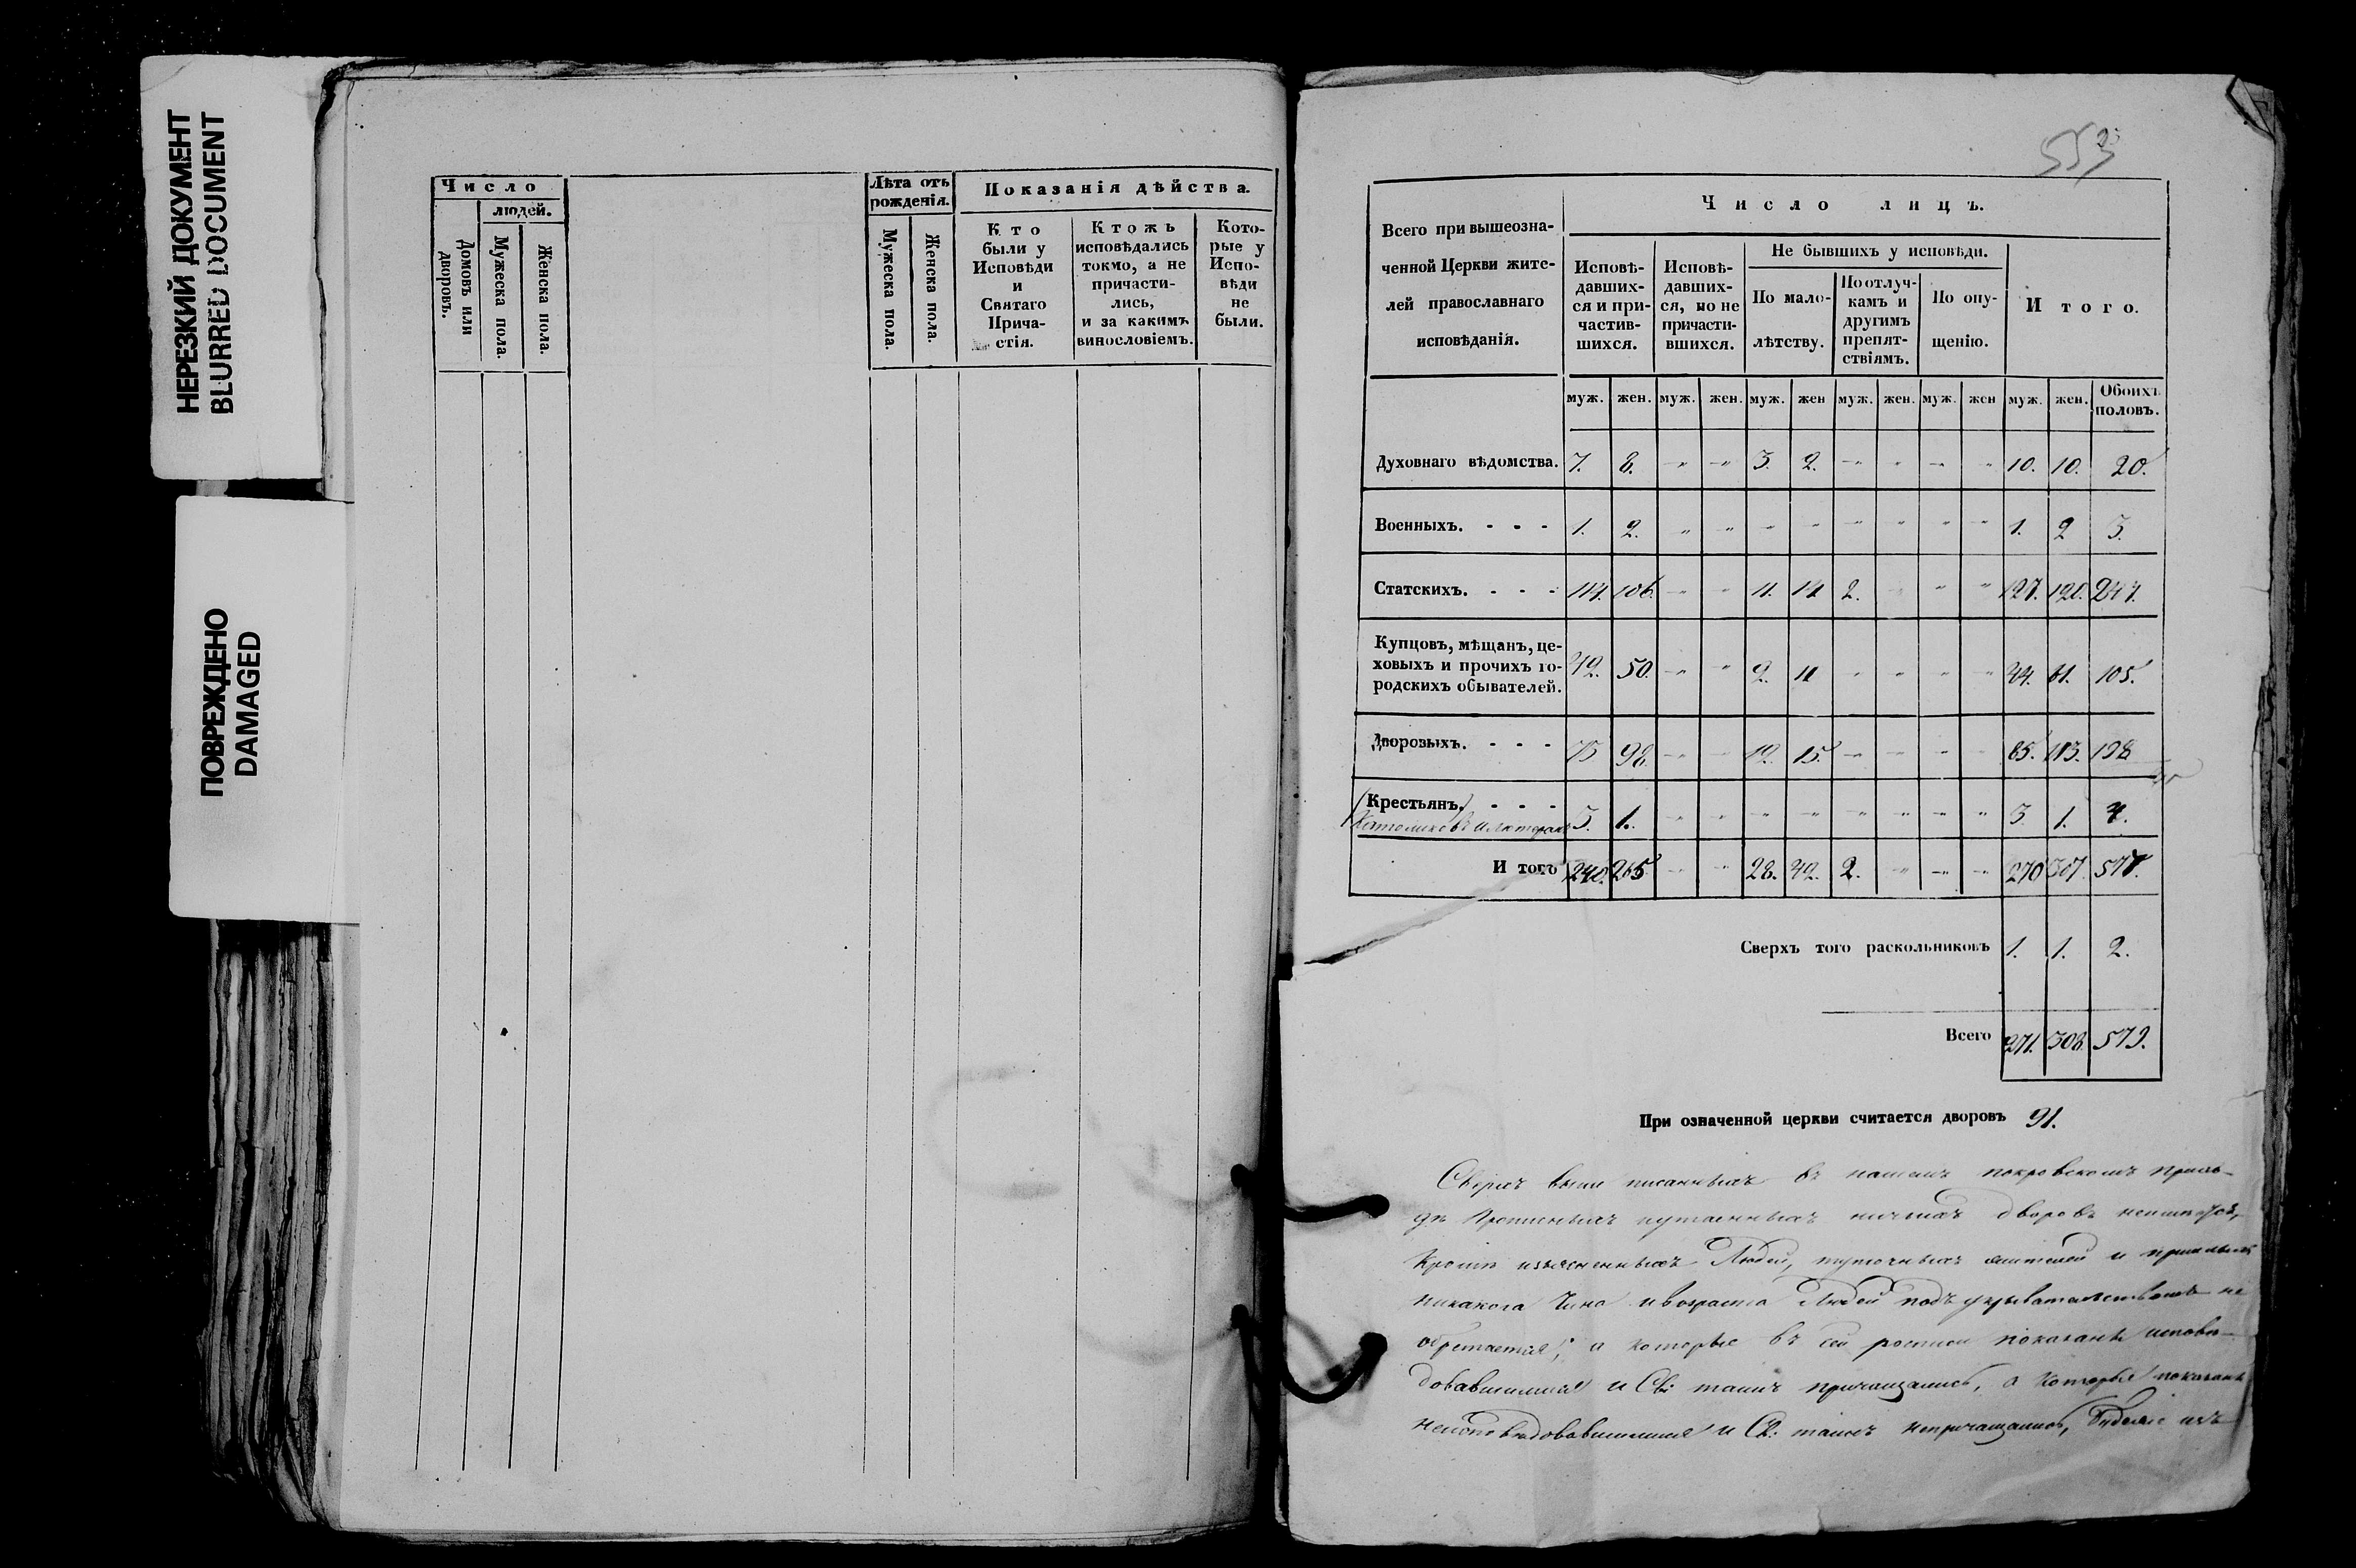 НЕРЕЗКИЙ ДОКУМЕНТ
BLURRED DOCUMENT
ПОВРЕЖДЕНО
DAMAGED
Число
людей.
Домовъ или дворовъ.
Мужеска пола.
Женска пола.
Лѣта отъ рожденія.
Мужеска пола.
Женска пола.
Показанія дѣйства.
Кто были у Исповѣди и Святаго Прича-стія.
Ктожъ исповѣдались токмо, а не причасти-лись, и за какимъ винословіемъ.
Кото-рые у Испо-вѣди не были.
553
Всего при вышеозна-
ченной Церкви жите-
лей православнаго
исповѣданія.
Число лицъ.
Исповѣ-давших-ся и при-частив-шихся.
Исповѣ-давших-ся, но не причасти-вшихся.
Не бывшихъ у исповѣди.
По мало-лѣтству.
По отлуч-камъ и другимъ препят-ствіямъ.
По опу-щенію.
Итого.
муж. жен. муж. жен. муж. жен муж. жен. муж. жен муж. жен. Обоихъ половъ.
Духовнаго вѣдомства. 7. 8. " " 3. 2. " " " " 10. 10. 20.
Военныхъ. - - - 1. 2. " " " " " " " " 1. 2 3.
Статскихъ. - - - 114. 106. " " 11. 14 2. " " " 127. 120. 247.
Купцовъ, мѣщанъ, це-
ховыхъ и прочихъ го-
родскихъ обывателей. 42. 50. " " 2. 11 " " " " 44. 61. 105.
Дворовыхъ. - - - 98. " " 12. 15. " " " " 85. 113. 198
Крестьянъ. - - -
Католиковъ и лютеранъ 3. 1. " " " " " " " " 3 1. 4.
Итого 240. 265 " " 28. 42. 2. " " " 270 307. 577.
Сверхъ того раскольниковъ 1. 1. 2.
Всего 271. 308. 579.
При означенной церкви считается дворовъ 91.
Сверхъ выше писанныхъ въ нашемъ покровскомъ прихо-
дѣ дворовъ
Кромѣ Людей, жителей и
никакого чина и возраста Людей подъ укрывательствомъ не
обретается; а которые въ сей росписи показаны исповѣ-
довавшимися и Св: таинъ причащались, а которые показаны
неисповѣдовавшимися и Св: таинъ непричащались,